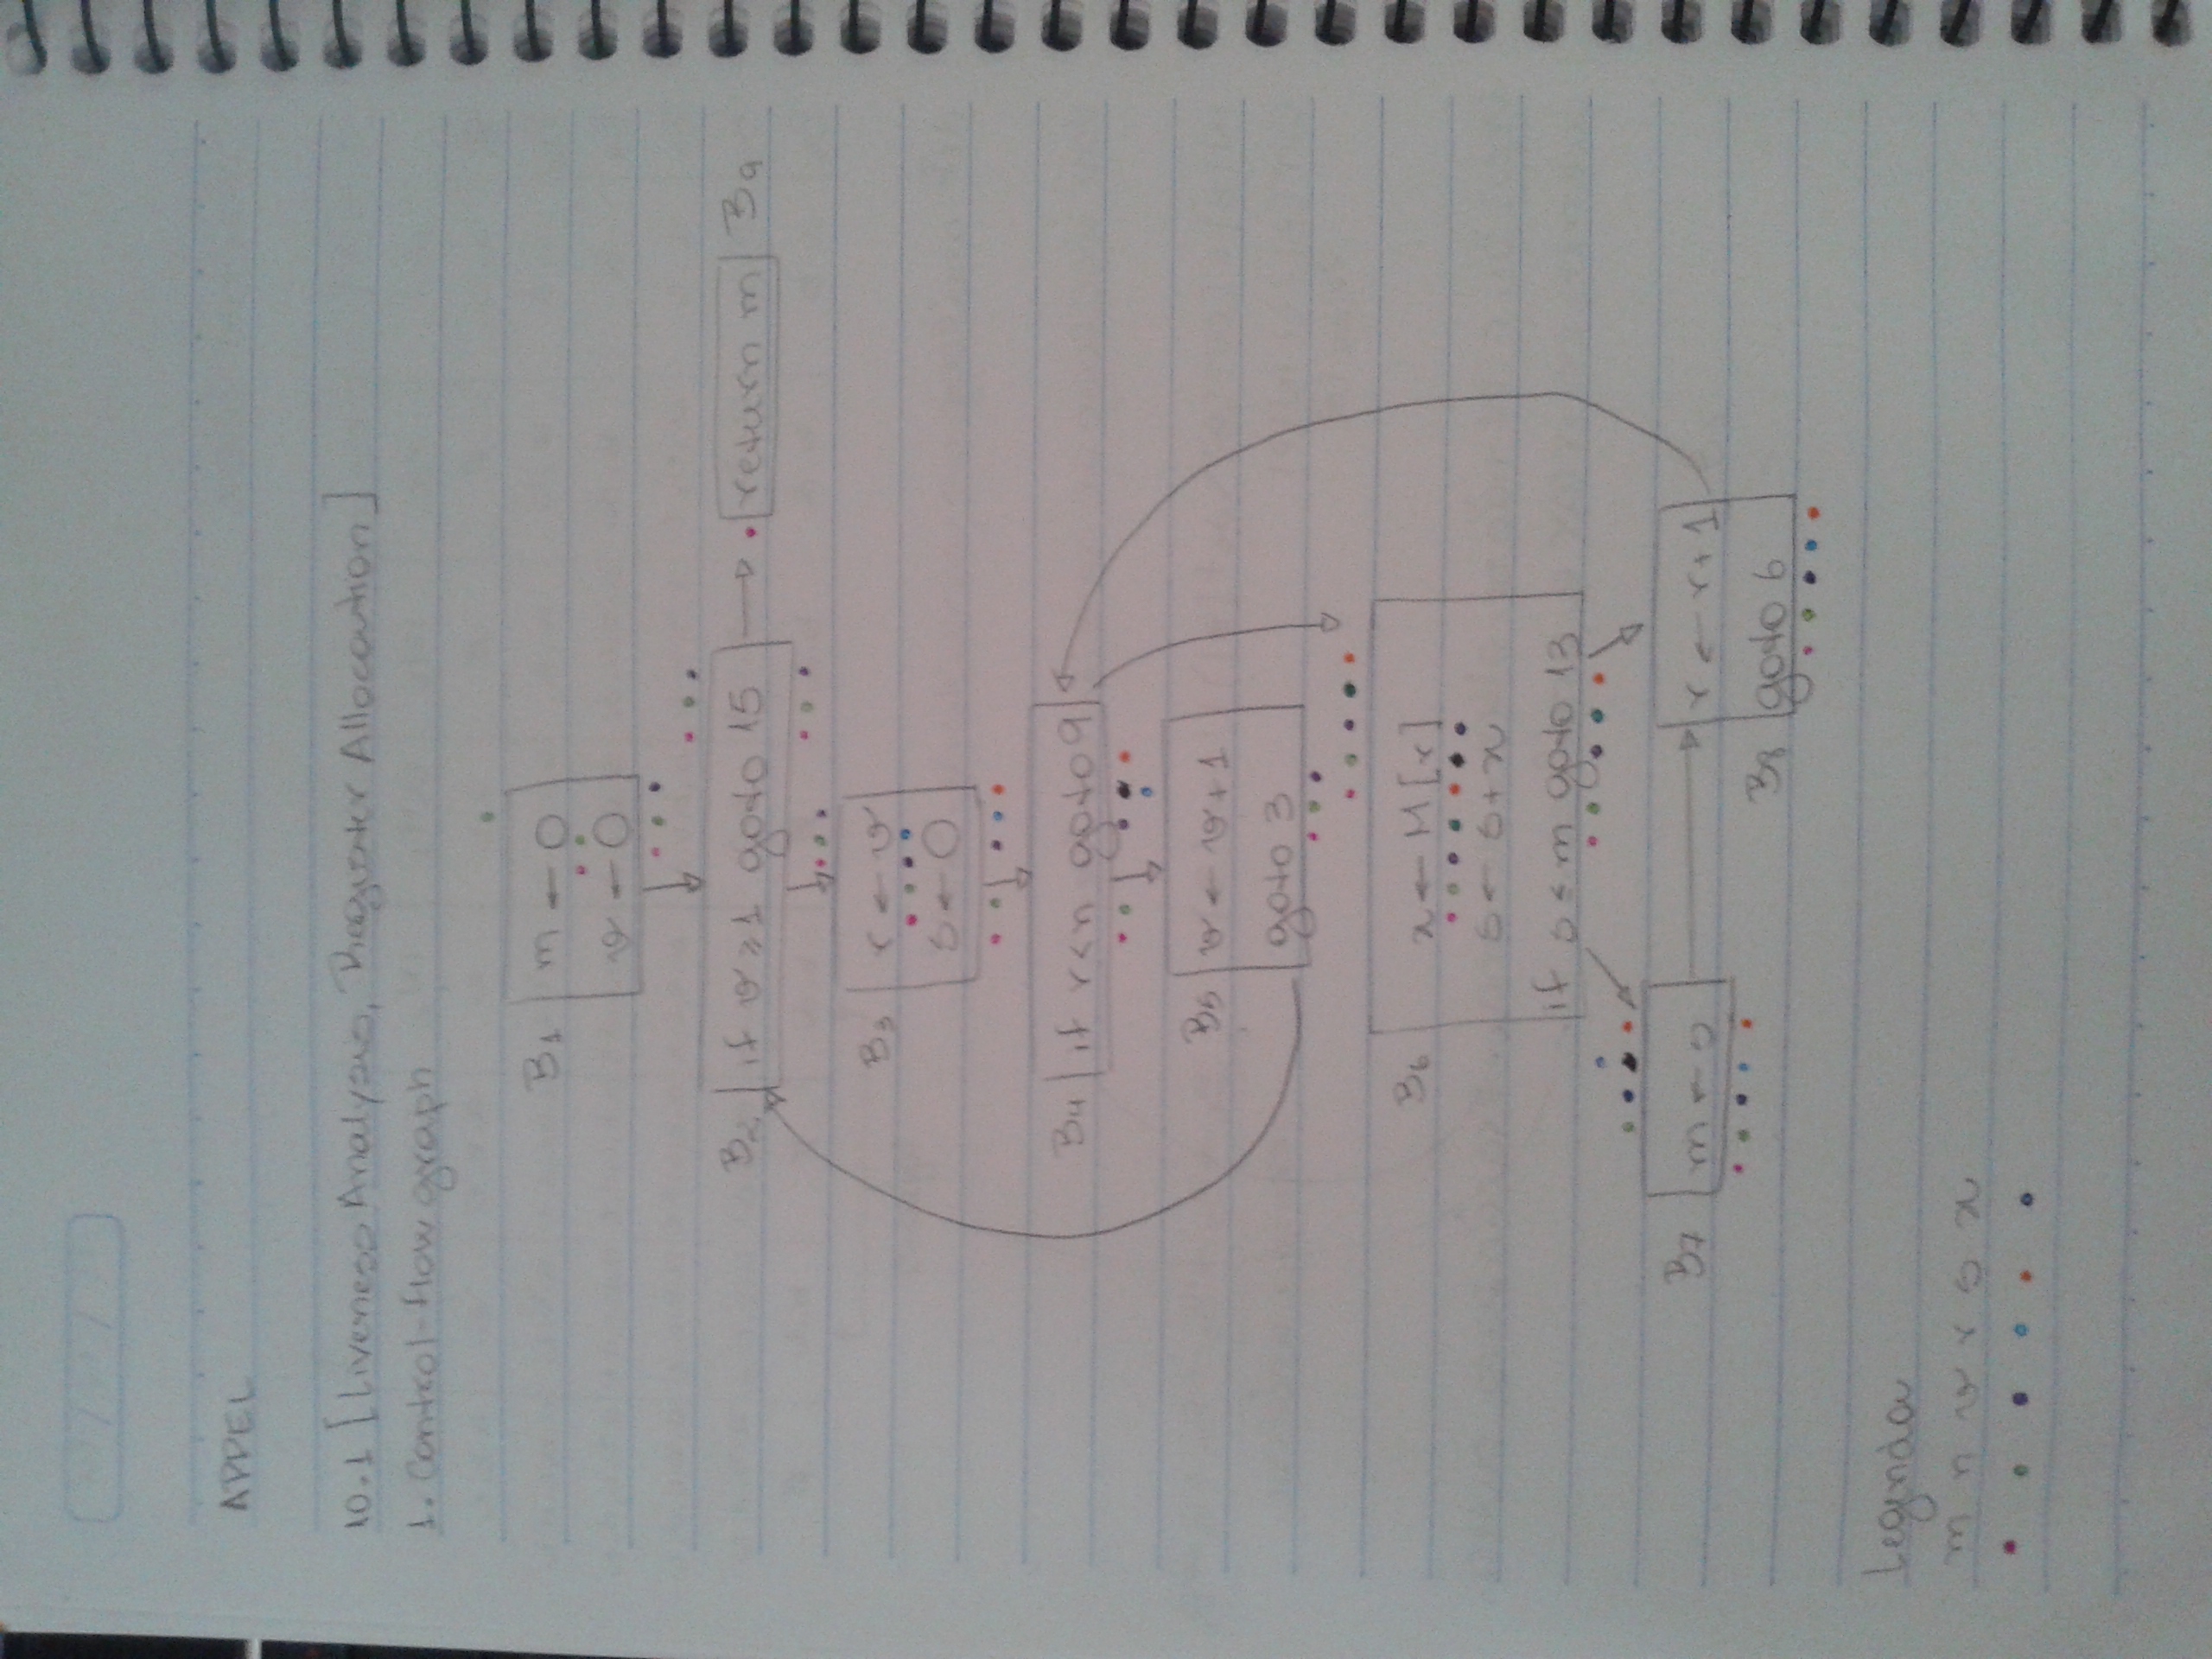 APPEL
10.1 [Liveness Analysis, Register Allocation]
1. Control-flow graph
B1 m ← 0
v ← 0
B2 if v ≥ 1 goto 15 return m B9
B3 r ← v
s ← 0
B4 if r < n goto 9
B5 v ← v + 1
goto 3
B6 x ← M[r]
s ← s + x
if s ≤ m goto 13
B7 m ← s r ← r + 1
B8 goto 6
Legenda
m n v r s x